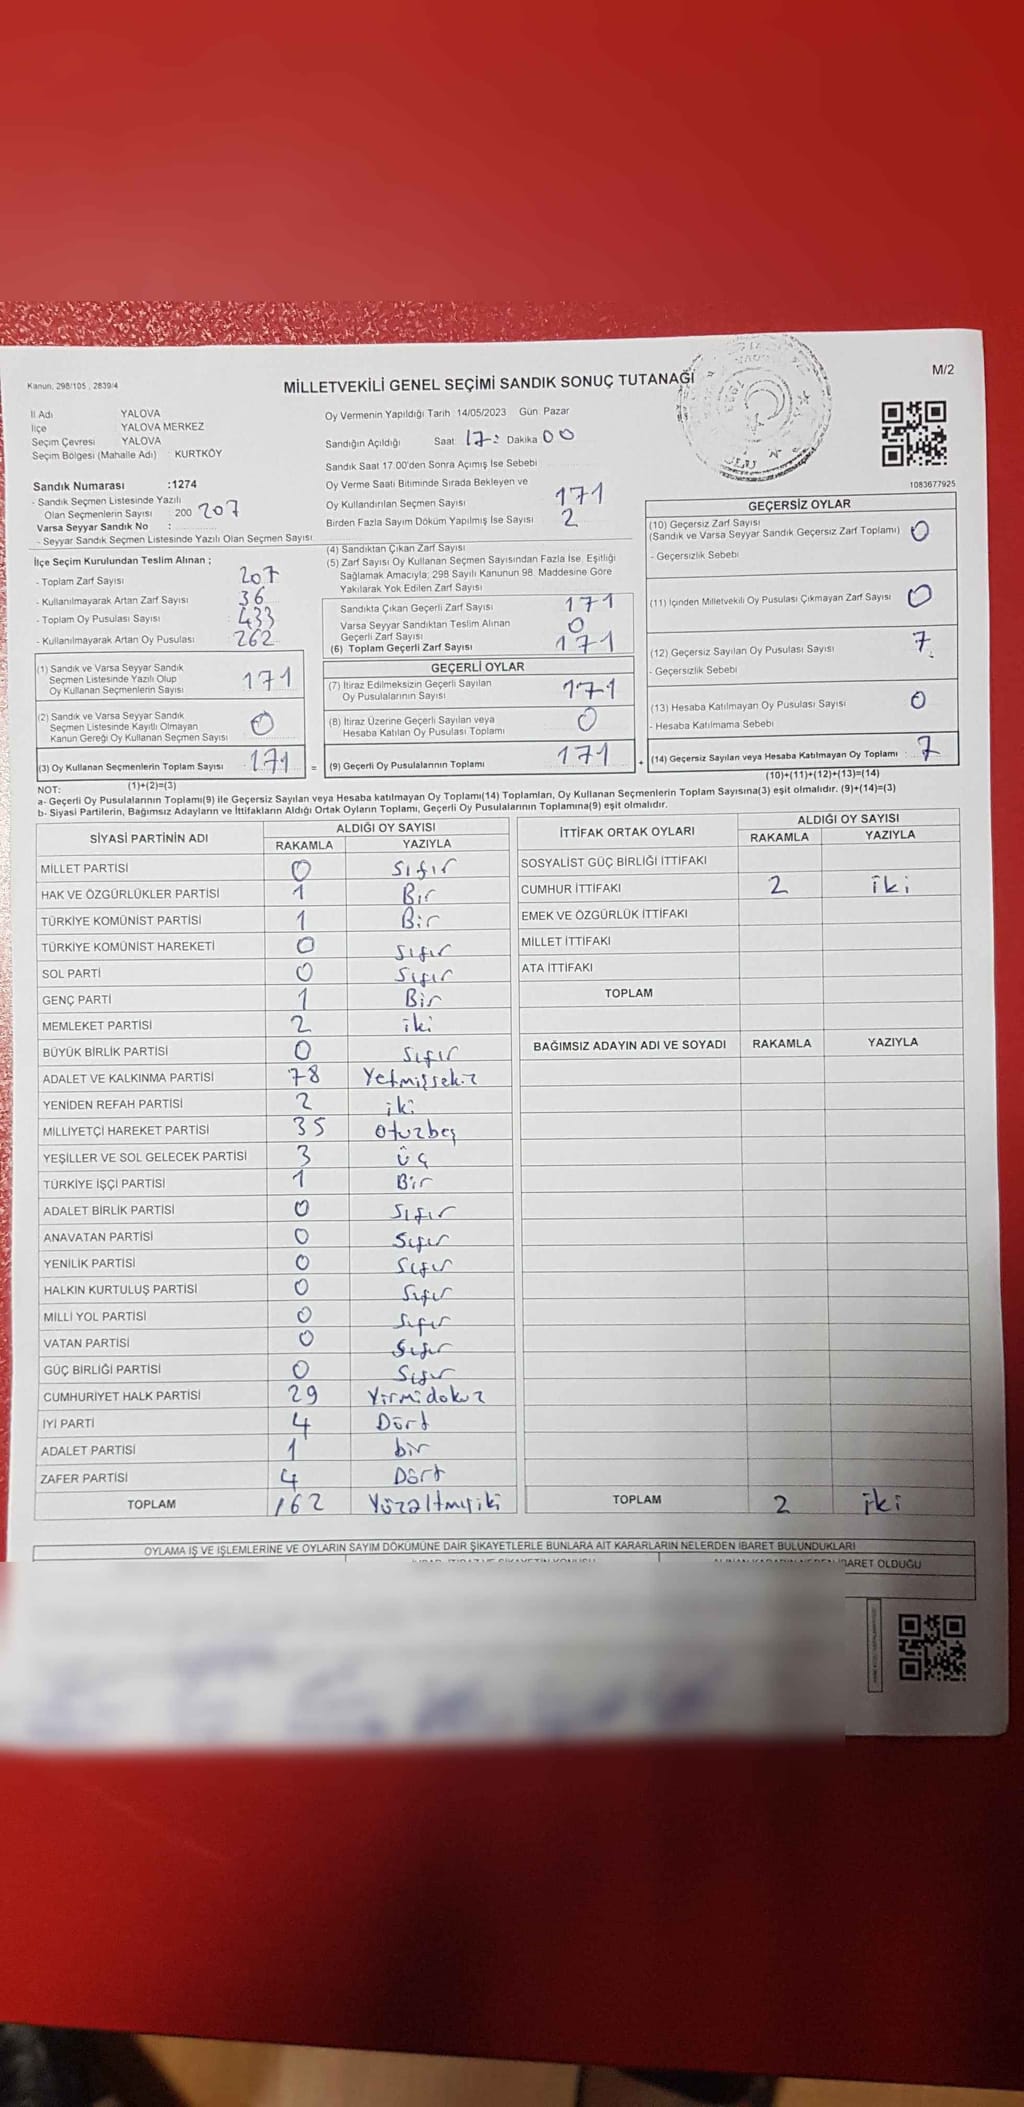 Kanun, 298/105, 2839/4
MİLLETVEKİLİ GENEL SEÇİMİ SANDIK SONUÇ TUTANAĞI
M/2
İl Adı YALOVA
İlçe YALOVA MERKEZ
Seçim Çevresi YALOVA
Seçim Bölgesi (Mahalle Adı) : KURTKÖY
Sandık Numarası :1274
- Sandık Seçmen Listesinde Yazılı
Olan Seçmenlerin Sayısı 200 207
Varsa Seyyar Sandık No :
- Seyyar Sandık Seçmen Listesinde Yazılı Olan Seçmen Sayısı
Oy Vermenin Yapıldığı Tarih :14/05/2023 Gün Pazar
Sandığın Açıldığı Saat 17: Dakika 00
Sandık Saat 17.00'den Sonra Açımış İse Sebebi
Oy Verme Saati Bitiminde Sırada Bekleyen ve
Oy Kullandırılan Seçmen Sayısı 171
Birden Fazla Sayım Döküm Yapılmış İse Sayısı 2
1083677925
İlçe Seçim Kurulundan Teslim Alınan ;
- Toplam Zarf Sayısı 207
- Kullanılmayarak Artan Zarf Sayısı 36
- Toplam Oy Pusulası Sayısı 433
- Kullanılmayarak Artan Oy Pusulası 262
(1) Sandık ve Varsa Seyyar Sandık
Seçmen Listesinde Yazılı Olup
Oy Kullanan Seçmenlerin Sayısı 171
(2) Sandık ve Varsa Seyyar Sandık
Seçmen Listesinde Kayıtlı Olmayan
Kanun Gereği Oy Kullanan Seçmen Sayısı 0
(3) Oy Kullanan Seçmenlerin Toplam Sayısı : 171 =
(1)+(2)=(3)
(4) Sandıktan Çıkan Zarf Sayısı
(5) Zarf Sayısı Oy Kullanan Seçmen Sayısından Fazla İse, Eşitliği
Sağlamak Amacıyla; 298 Sayılı Kanunun 98. Maddesine Göre
Yakılarak Yok Edilen Zarf Sayısı
Sandıkta Çıkan Geçerli Zarf Sayısı 171
Varsa Seyyar Sandıktan Teslim Alınan
Geçerli Zarf Sayısı 0
(6) Toplam Geçerli Zarf Sayısı 171
GEÇERLİ OYLAR
(7) İtiraz Edilmeksizin Geçerli Sayılan
Oy Pusulalarının Sayısı 171
(8) İtiraz Üzerine Geçerli Sayılan veya
Hesaba Katılan Oy Pusulası Toplamı 0
(9) Geçerli Oy Pusulalarının Toplamı 171 +
GEÇERSİZ OYLAR
(10) Geçersiz Zarf Sayısı
(Sandık ve Varsa Seyyar Sandık Geçersiz Zarf Toplamı) 0
- Geçersizlik Sebebi
(11) İçinden Milletvekili Oy Pusulası Çıkmayan Zarf Sayısı 0
(12) Geçersiz Sayılan Oy Pusulası Sayısı 7
- Geçersizlik Sebebi
(13) Hesaba Katılmayan Oy Pusulası Sayısı 0
- Hesaba Katılmama Sebebi
(14) Geçersiz Sayılan veya Hesaba Katılmayan Oy Toplamı : 7
(10)+(11)+(12)+(13)=(14)
NOT:
a- Geçerli Oy Pusulalarının Toplamı(9) ile Geçersiz Sayılan veya Hesaba katılmayan Oy Toplamı(14) Toplamları, Oy Kullanan Seçmenlerin Toplam Sayısına(3) eşit olmalıdır. (9)+(14)=(3)
b- Siyasi Partilerin, Bağımsız Adayların ve İttifakların Aldığı Ortak Oyların Toplamı, Geçerli Oy Pusulalarının Toplamına(9) eşit olmalıdır.
SİYASİ PARTİNİN ADI ALDIĞI OY SAYISI
RAKAMLA YAZIYLA
MİLLET PARTİSİ 0 Sıfır
HAK VE ÖZGÜRLÜKLER PARTİSİ 1 Bir
TÜRKİYE KOMÜNİST PARTİSİ 1 Bir
TÜRKİYE KOMÜNİST HAREKETİ 0 Sıfır
SOL PARTİ 0 Sıfır
GENÇ PARTİ 1 Bir
MEMLEKET PARTİSİ 2 iki
BÜYÜK BİRLİK PARTİSİ 0 Sıfır
ADALET VE KALKINMA PARTİSİ 78 Yetmişsekiz
YENİDEN REFAH PARTİSİ 2 iki
MİLLİYETÇİ HAREKET PARTİSİ 35 Otuzbeş
YEŞİLLER VE SOL GELECEK PARTİSİ 3 üç
TÜRKİYE İŞÇİ PARTİSİ 1 Bir
ADALET BİRLİK PARTİSİ 0 Sıfır
ANAVATAN PARTİSİ 0 Sıfır
YENİLİK PARTİSİ 0 Sıfır
HALKIN KURTULUŞ PARTİSİ 0 Sıfır
MİLLİ YOL PARTİSİ 0 Sıfır
VATAN PARTİSİ 0 Sıfır
GÜÇ BİRLİĞİ PARTİSİ 0 Sıfır
CUMHURİYET HALK PARTİSİ 29 Yirmidokuz
İYİ PARTİ 4 Dört
ADALET PARTİSİ 1 bir
ZAFER PARTİSİ 4 Dört
TOPLAM 162 Yüzaltmışiki
İTTİFAK ORTAK OYLARI ALDIĞI OY SAYISI
RAKAMLA YAZIYLA
SOSYALİST GÜÇ BİRLİĞİ İTTİFAKI
CUMHUR İTTİFAKI 2 iki
EMEK VE ÖZGÜRLÜK İTTİFAKI
MİLLET İTTİFAKI
ATA İTTİFAKI
TOPLAM
BAĞIMSIZ ADAYIN ADI VE SOYADI RAKAMLA YAZIYLA
TOPLAM 2 iki
OYLAMA İŞ VE İŞLEMLERİNE VE OYLARIN SAYIM DÖKÜMÜNE DAİR ŞİKAYETLERLE BUNLARA AİT KARARLARIN NELERDEN İBARET BULUNDUKLARI
İBARET OLDUĞU